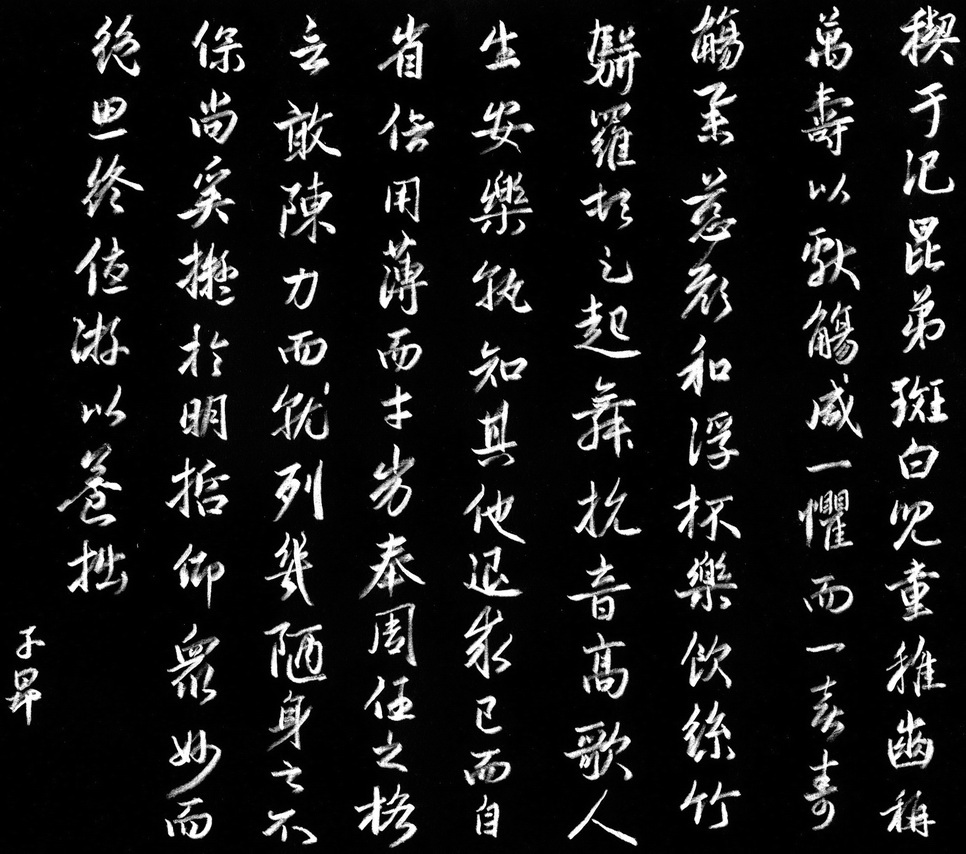 禊于汜昆弟斑白兒童稚齒稱
萬壽以獻觴咸一懼而一喜壽
觴舉慈顏和浮杯樂飲絲竹
駢羅頓足起舞抗音高歌人
生安樂孰知其他退求己而自
省信用薄而才劣奉周任之格
言敢陳力而就列幾陋身之不
保尚奚擬於明哲仰衆妙而
絕思終優游以養拙
子昂